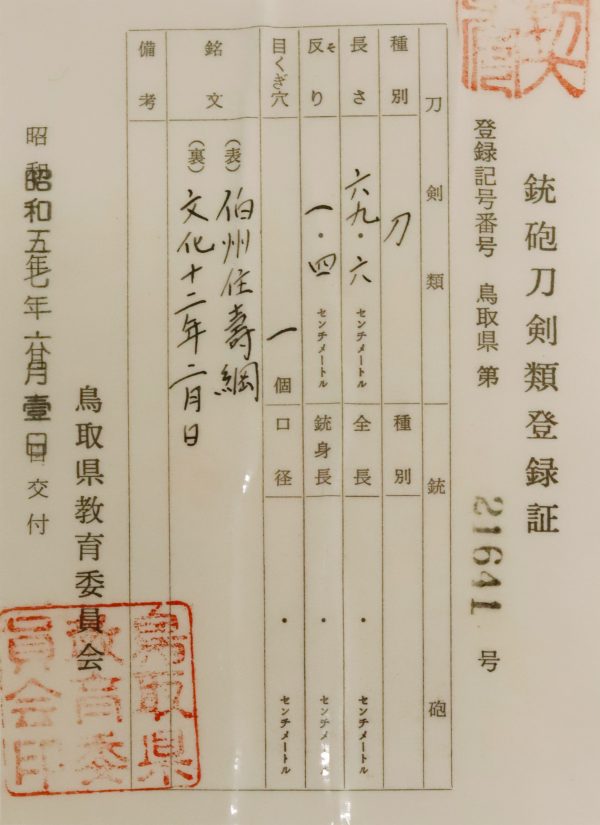 銃砲刀剣類登録証
登録記号番号 鳥取県 第 21641 号
刀剣類 銃砲
種別 刀 種別
長さ 六九・六 センチメートル 全長 ・ センチメートル
反り そ 一・四 センチメートル 銃身長 ・ センチメートル
目くぎ穴 一 個 口径 ・ センチメートル
銘文 (表) 伯州住壽綱
(裏) 文化十二年二月日
備考
鳥取県教育委員会
昭和五七年 月壹日交付
鳥取県
教育委
員会印